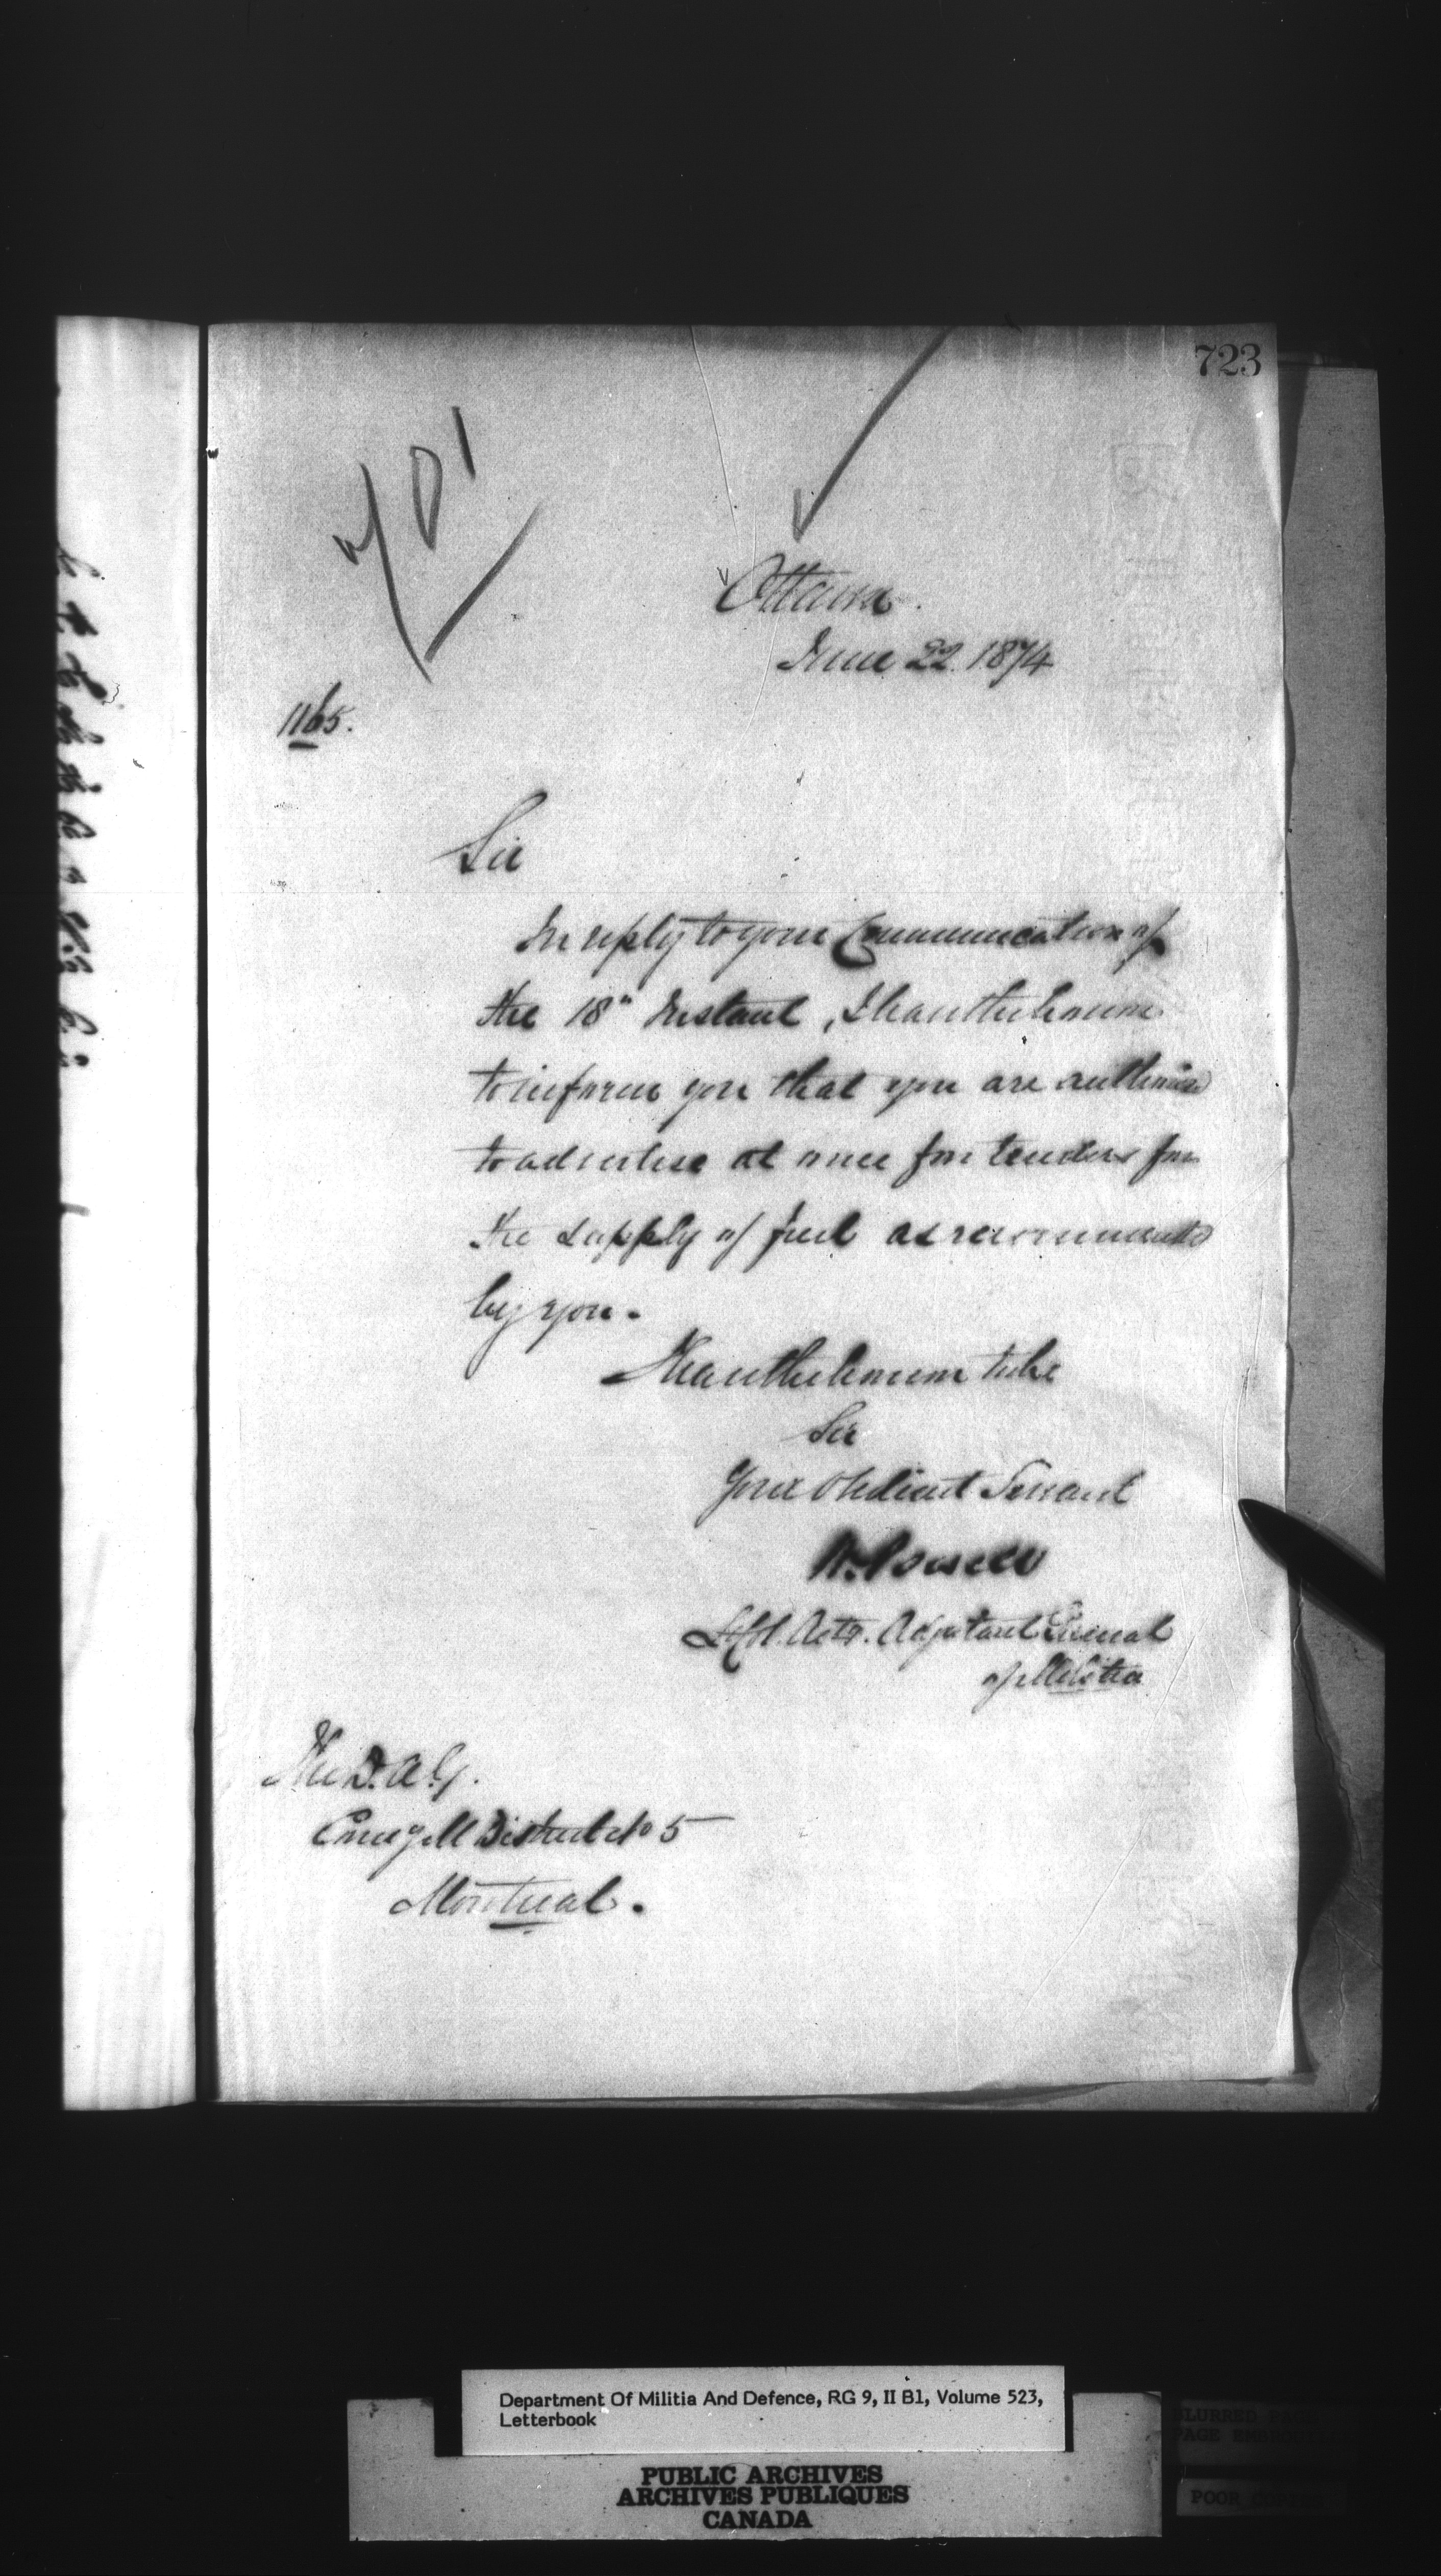 723
Ottawa.
June 22. 1874
1165.
Sir
In reply to your Communication of
the 18" Instant, I have the honour
to inform you that you are authorised
to advertise at once for tenders for
the supply of fuel as recommended
by you.
I have the honour to be
Sir
Your obedient Servant
W. Powell
Lt Col. Actg. Adjutant General
of Militia
The D.A.G.
Comg M District No 5
Montreal.
Department Of Militia And Defence, RG 9, II B1, Volume 523,
Letterbook
PUBLIC ARCHIVES
ARCHIVES PUBLIQUES
CANADA
BLURRED PAGE
POOR